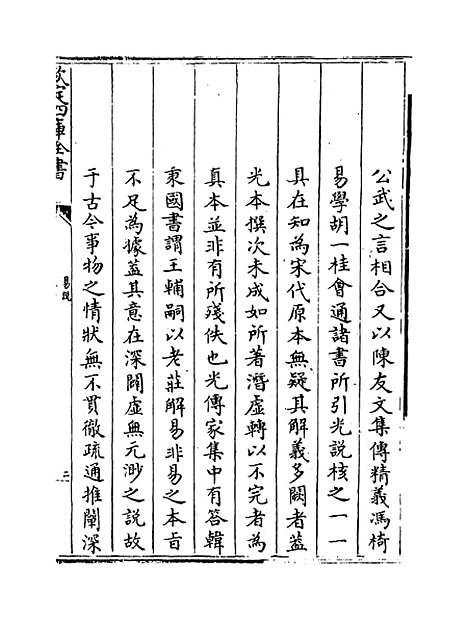 公武之言相合又以陳友文集傳精義馮椅
易學胡一桂會通諸書所引光説核之一一
具在知為宋代原本無疑其解義多闕者蓋
光本撰次未成如所著潛虛轉以不完者為
真本並非有所殘佚也光傳家集中有答韓
秉國書謂王輔嗣以老莊解易非易之本旨
不足為據蓋其意在深闢虛無元渺之説故
于古今事物之情狀無不貫徹疏通推闡深
欽定四庫全書
易説
三